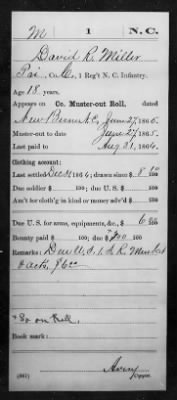 M 1 N.C.
David R. Miller
Pvt., Co. C, 1 Reg't N. C. Infantry.
Age 18 years.
Appears on Co. Muster-out Roll, dated
New Berne N.C., June 27, 1865.
Muster-out to date June 27, 1865.
Last paid to Aug 31, 1864.
Clothing account:
Last settled Dec 31, 1864; drawn since $ 8 00
Due soldier $ 100; due U. S. $ 100
Am't for cloth'g in kind or money adv'd $ 100
Due U. S. for arms, equipments, &c., $ 6 100
Bounty paid $ 100; due $ 100 100
Remarks: Due U.S.
*So on Roll.
Book mark:
Avery
Copyist.